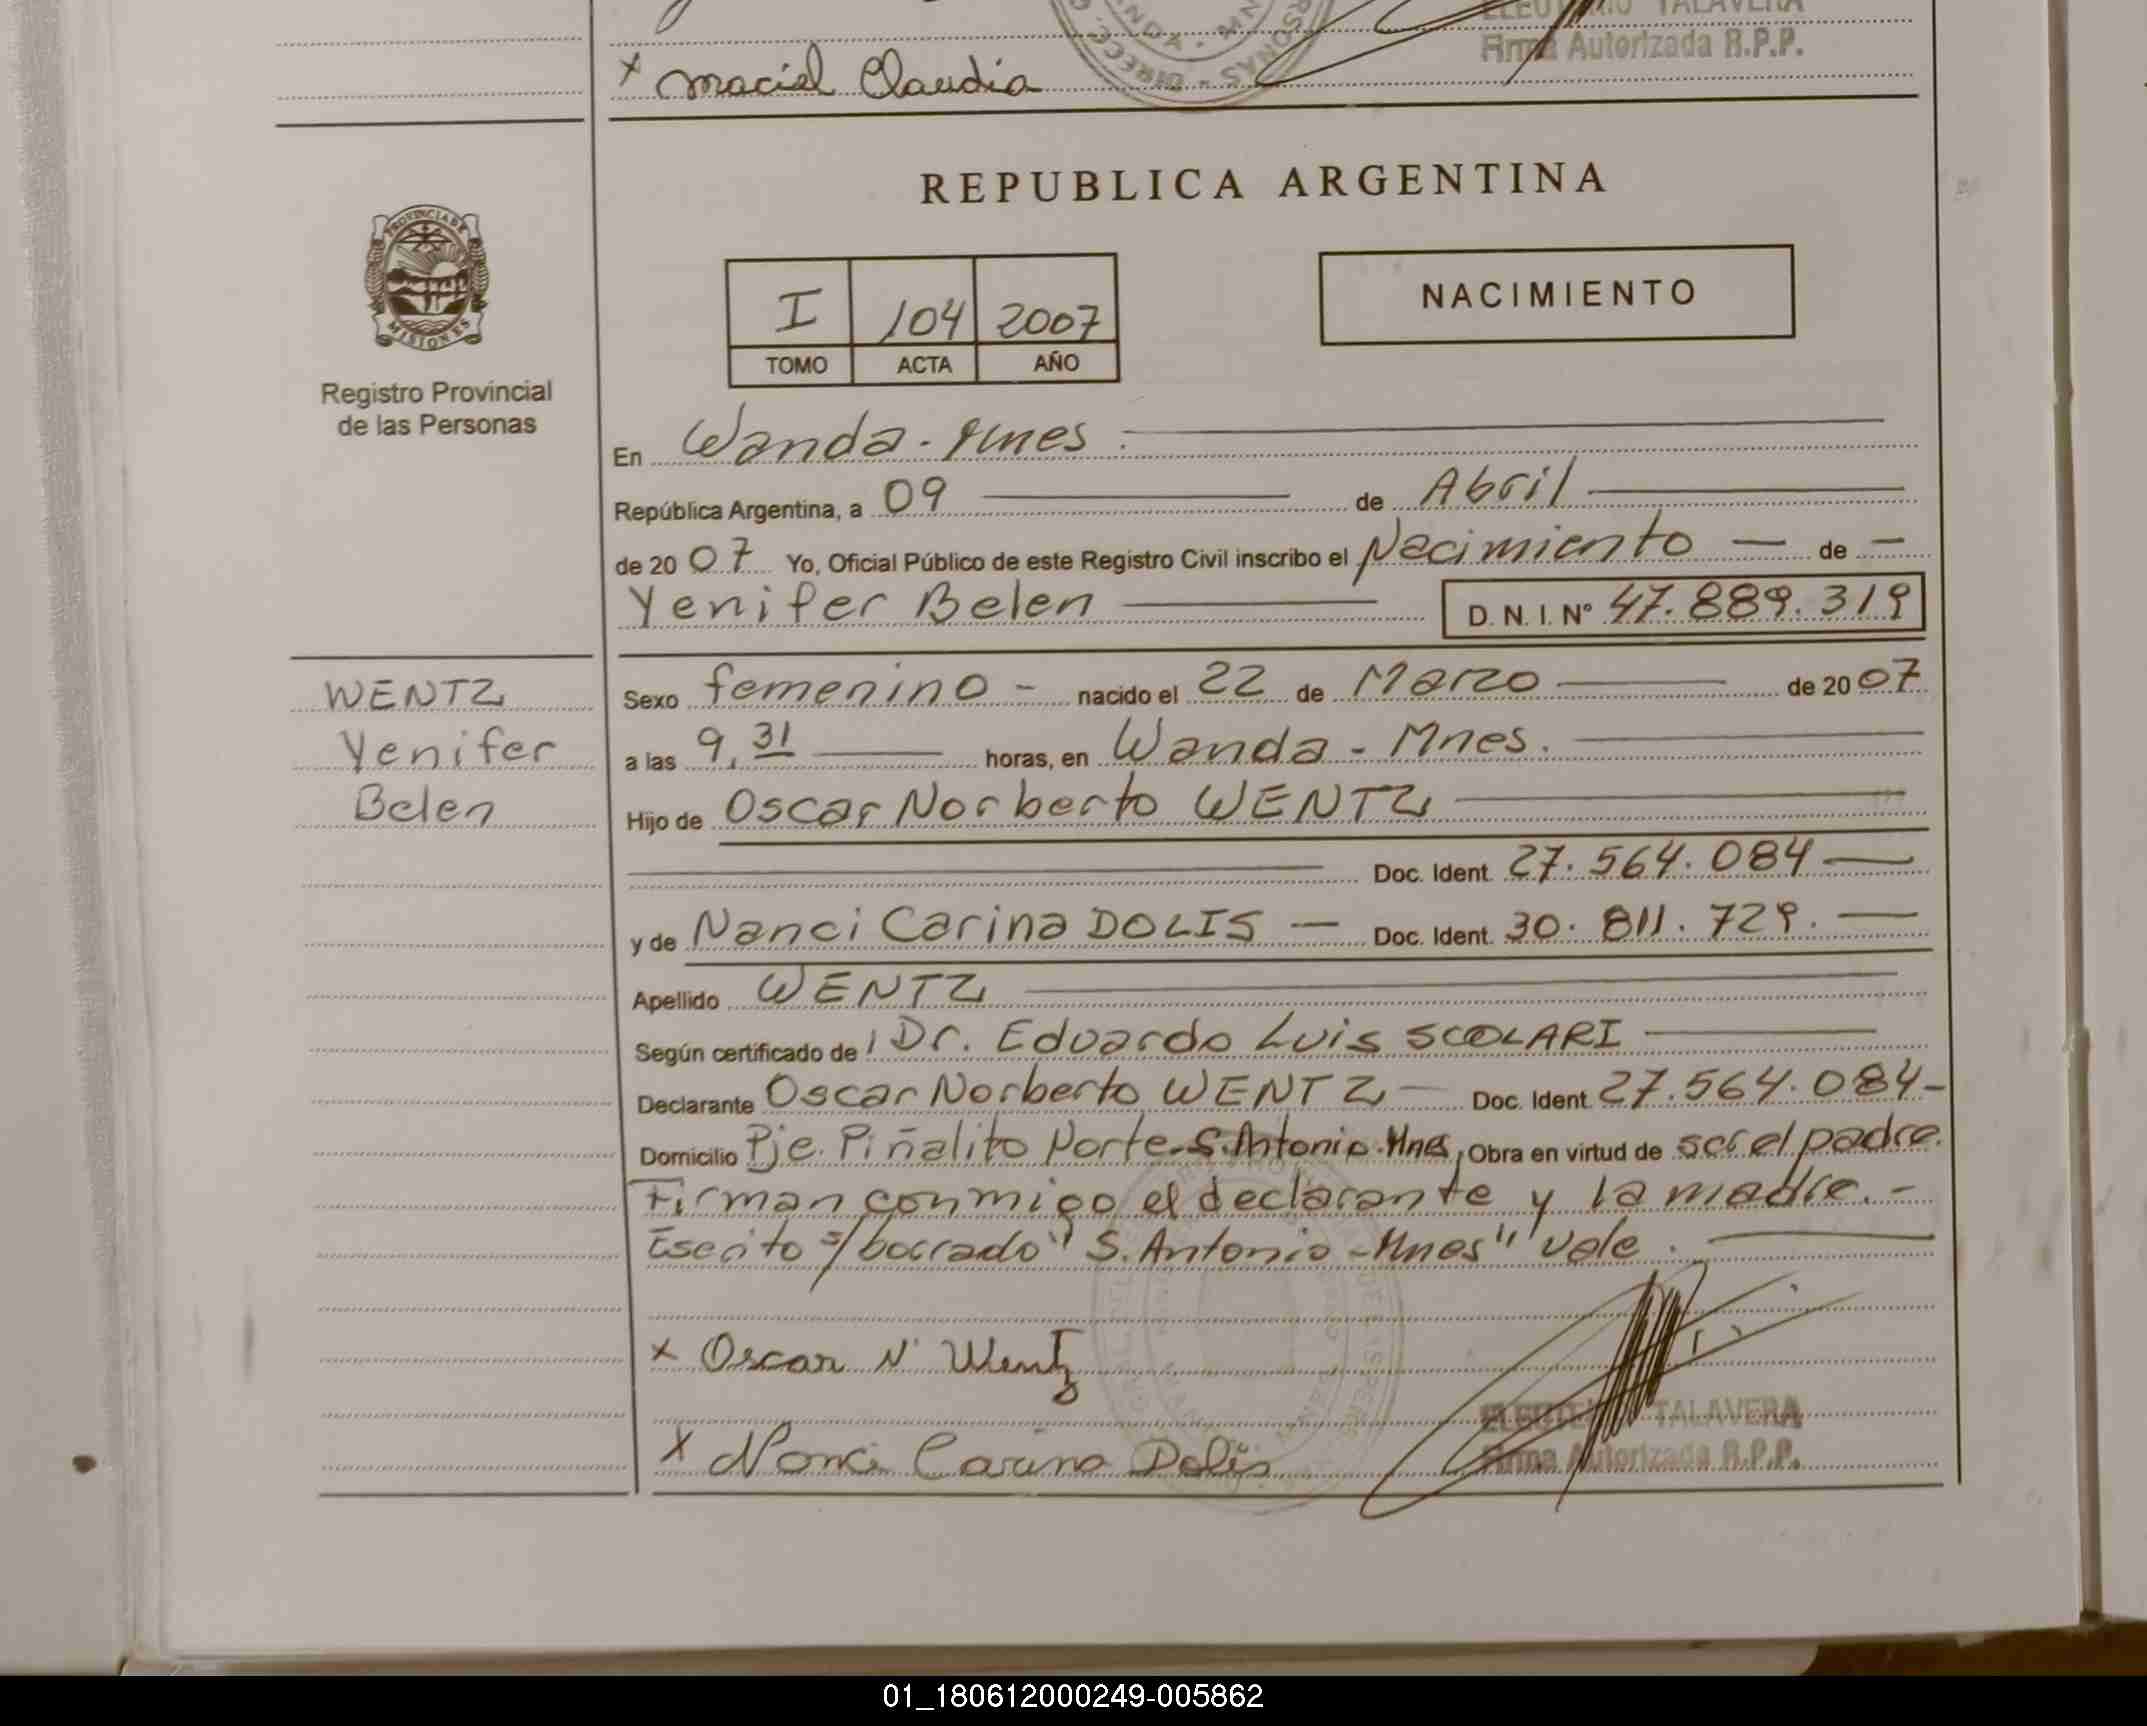 ELEUTERIO TALAVERA
Firma Autorizada R.P.P.
x Maciel Claudia
REPUBLICA ARGENTINA
PROVINCIA DE
MISIONES
Registro Provincial
de las Personas
I 104 2007
TOMO ACTA AÑO
NACIMIENTO
En Wanda - Mnes.
República Argentina, a 09 de Abril
de 2007 Yo, Oficial Público de este Registro Civil inscribo el Nacimiento — de —
Yenifer Belen D. N. I. Nº 47.889.319
WENTZ
Yenifer
Belen
Sexo femenino - nacido el 22 de Marzo de 2007
a las 9,31 horas, en Wanda - Mnes.
Hijo de Oscar Norberto WENTZ
Doc. Ident. 27.564.084
y de Nanci Carina DOLIS — Doc. Ident. 30.811.729.
Apellido WENTZ
Según certificado de Dr. Eduardo Luis SCOLARI
Declarante Oscar Norberto WENTZ — Doc. Ident. 27.564.084-
Domicilio Pje. Piñalito Norte-S.Antonio-Mnes, Obra en virtud de ser el padre.
Firman conmigo el declarante y la madre.-
Escrito s/borrado "S. Antonio - Mnes" Vale.
x Oscar N. Wentz
x Nanci Carina Dolis
ELEUTERIO TALAVERA
Firma Autorizada R.P.P.
01_180612000249-005862